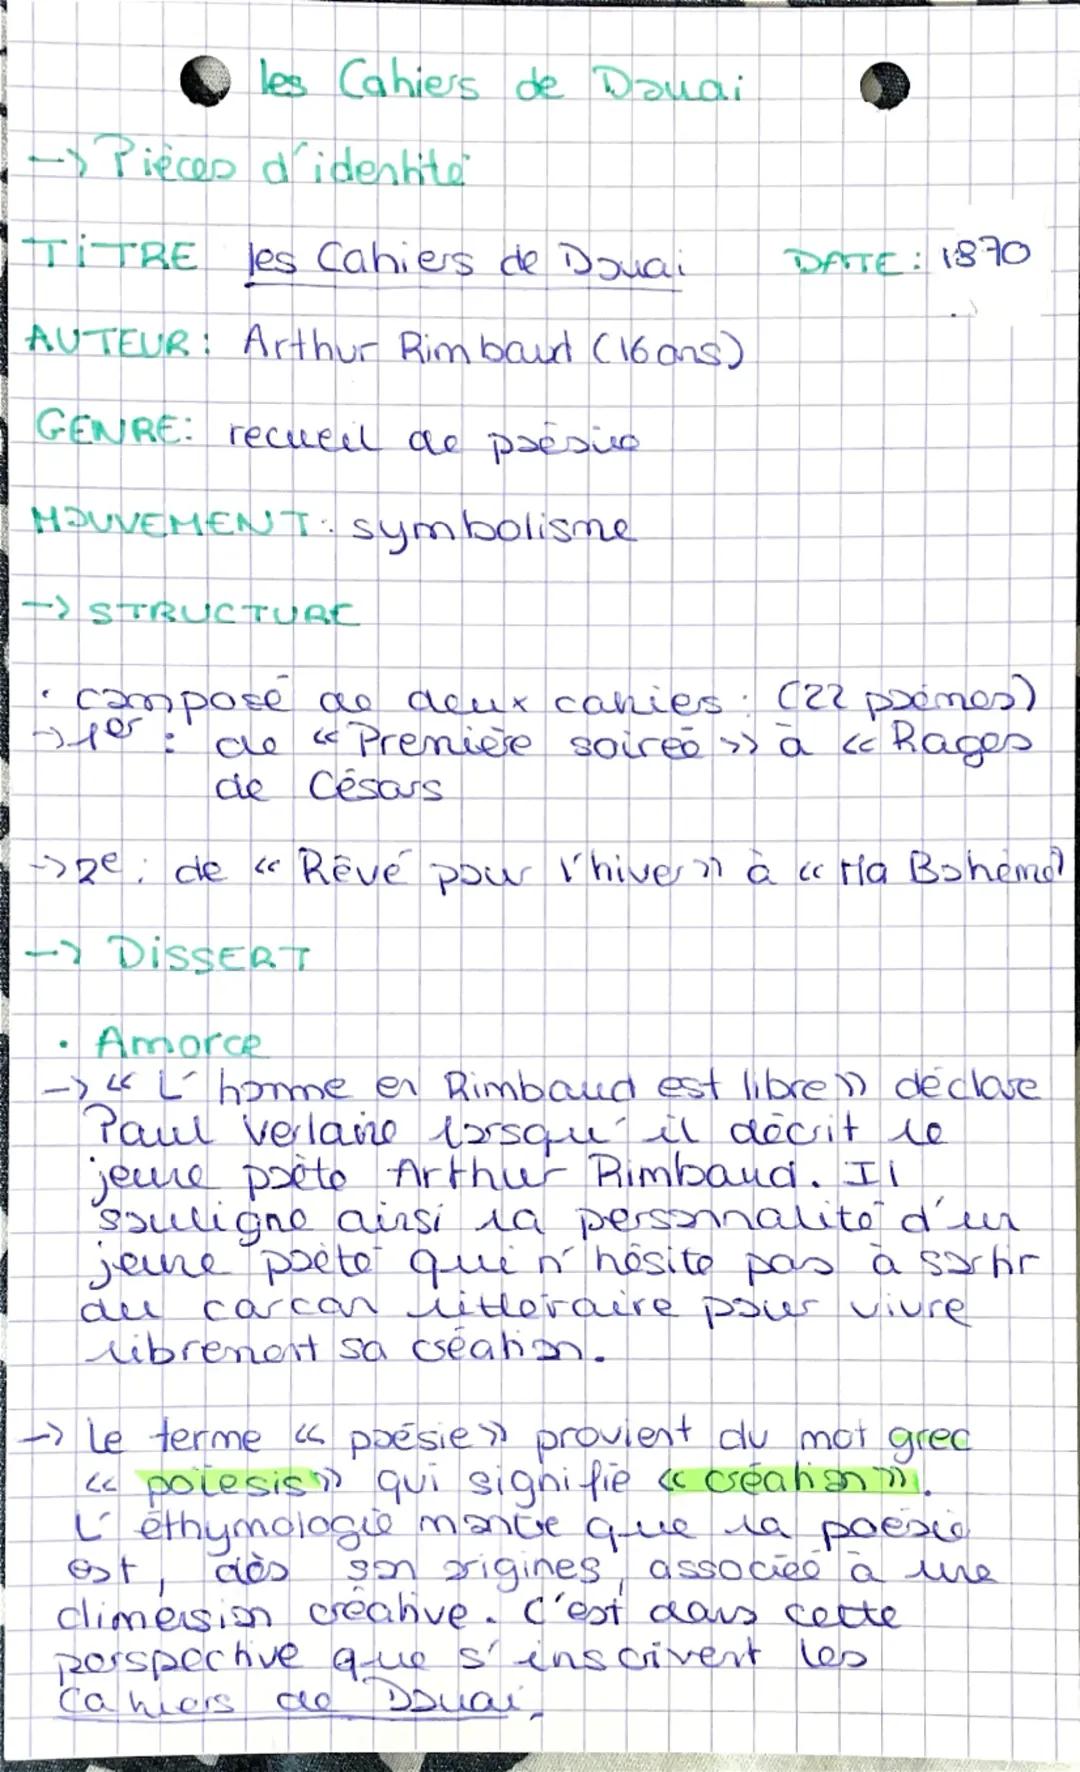 les Cahiers de Douai
-> Pièces d'identité
TITRE les Cahiers de Douai DATE : 1870
AUTEUR : Arthur Rimbaud (16 ans)
GENRE : recueil de poésie
MOUVEMENT : symbolisme
-> STRUCTURE
• composé de deux cahiers : (22 poèmes)
-> 1er : de « Première soirée » à « Rages
de Césars
-> 2e : de « Rêvé pour l'hiver » à « Ma Bohème »
-> DISSERT
• Amorce
-> « L'homme en Rimbaud est libre » déclare
Paul Verlaine lorsqu'il décrit le
jeune poète Arthur Rimbaud. Il
souligne ainsi la personnalité d'un
jeune poète qui n'hésite pas à sortir
du carcan littéraire pour vivre
librement sa création.
-> Le terme « poésie » provient du mot grec
« poïesis » qui signifie « création ».
L'éthymologie montre que la poésie
est, dès son origines, associée à une
dimension créative. C'est dans cette
perspective que s'inscrivent les
Cahiers de Douai.